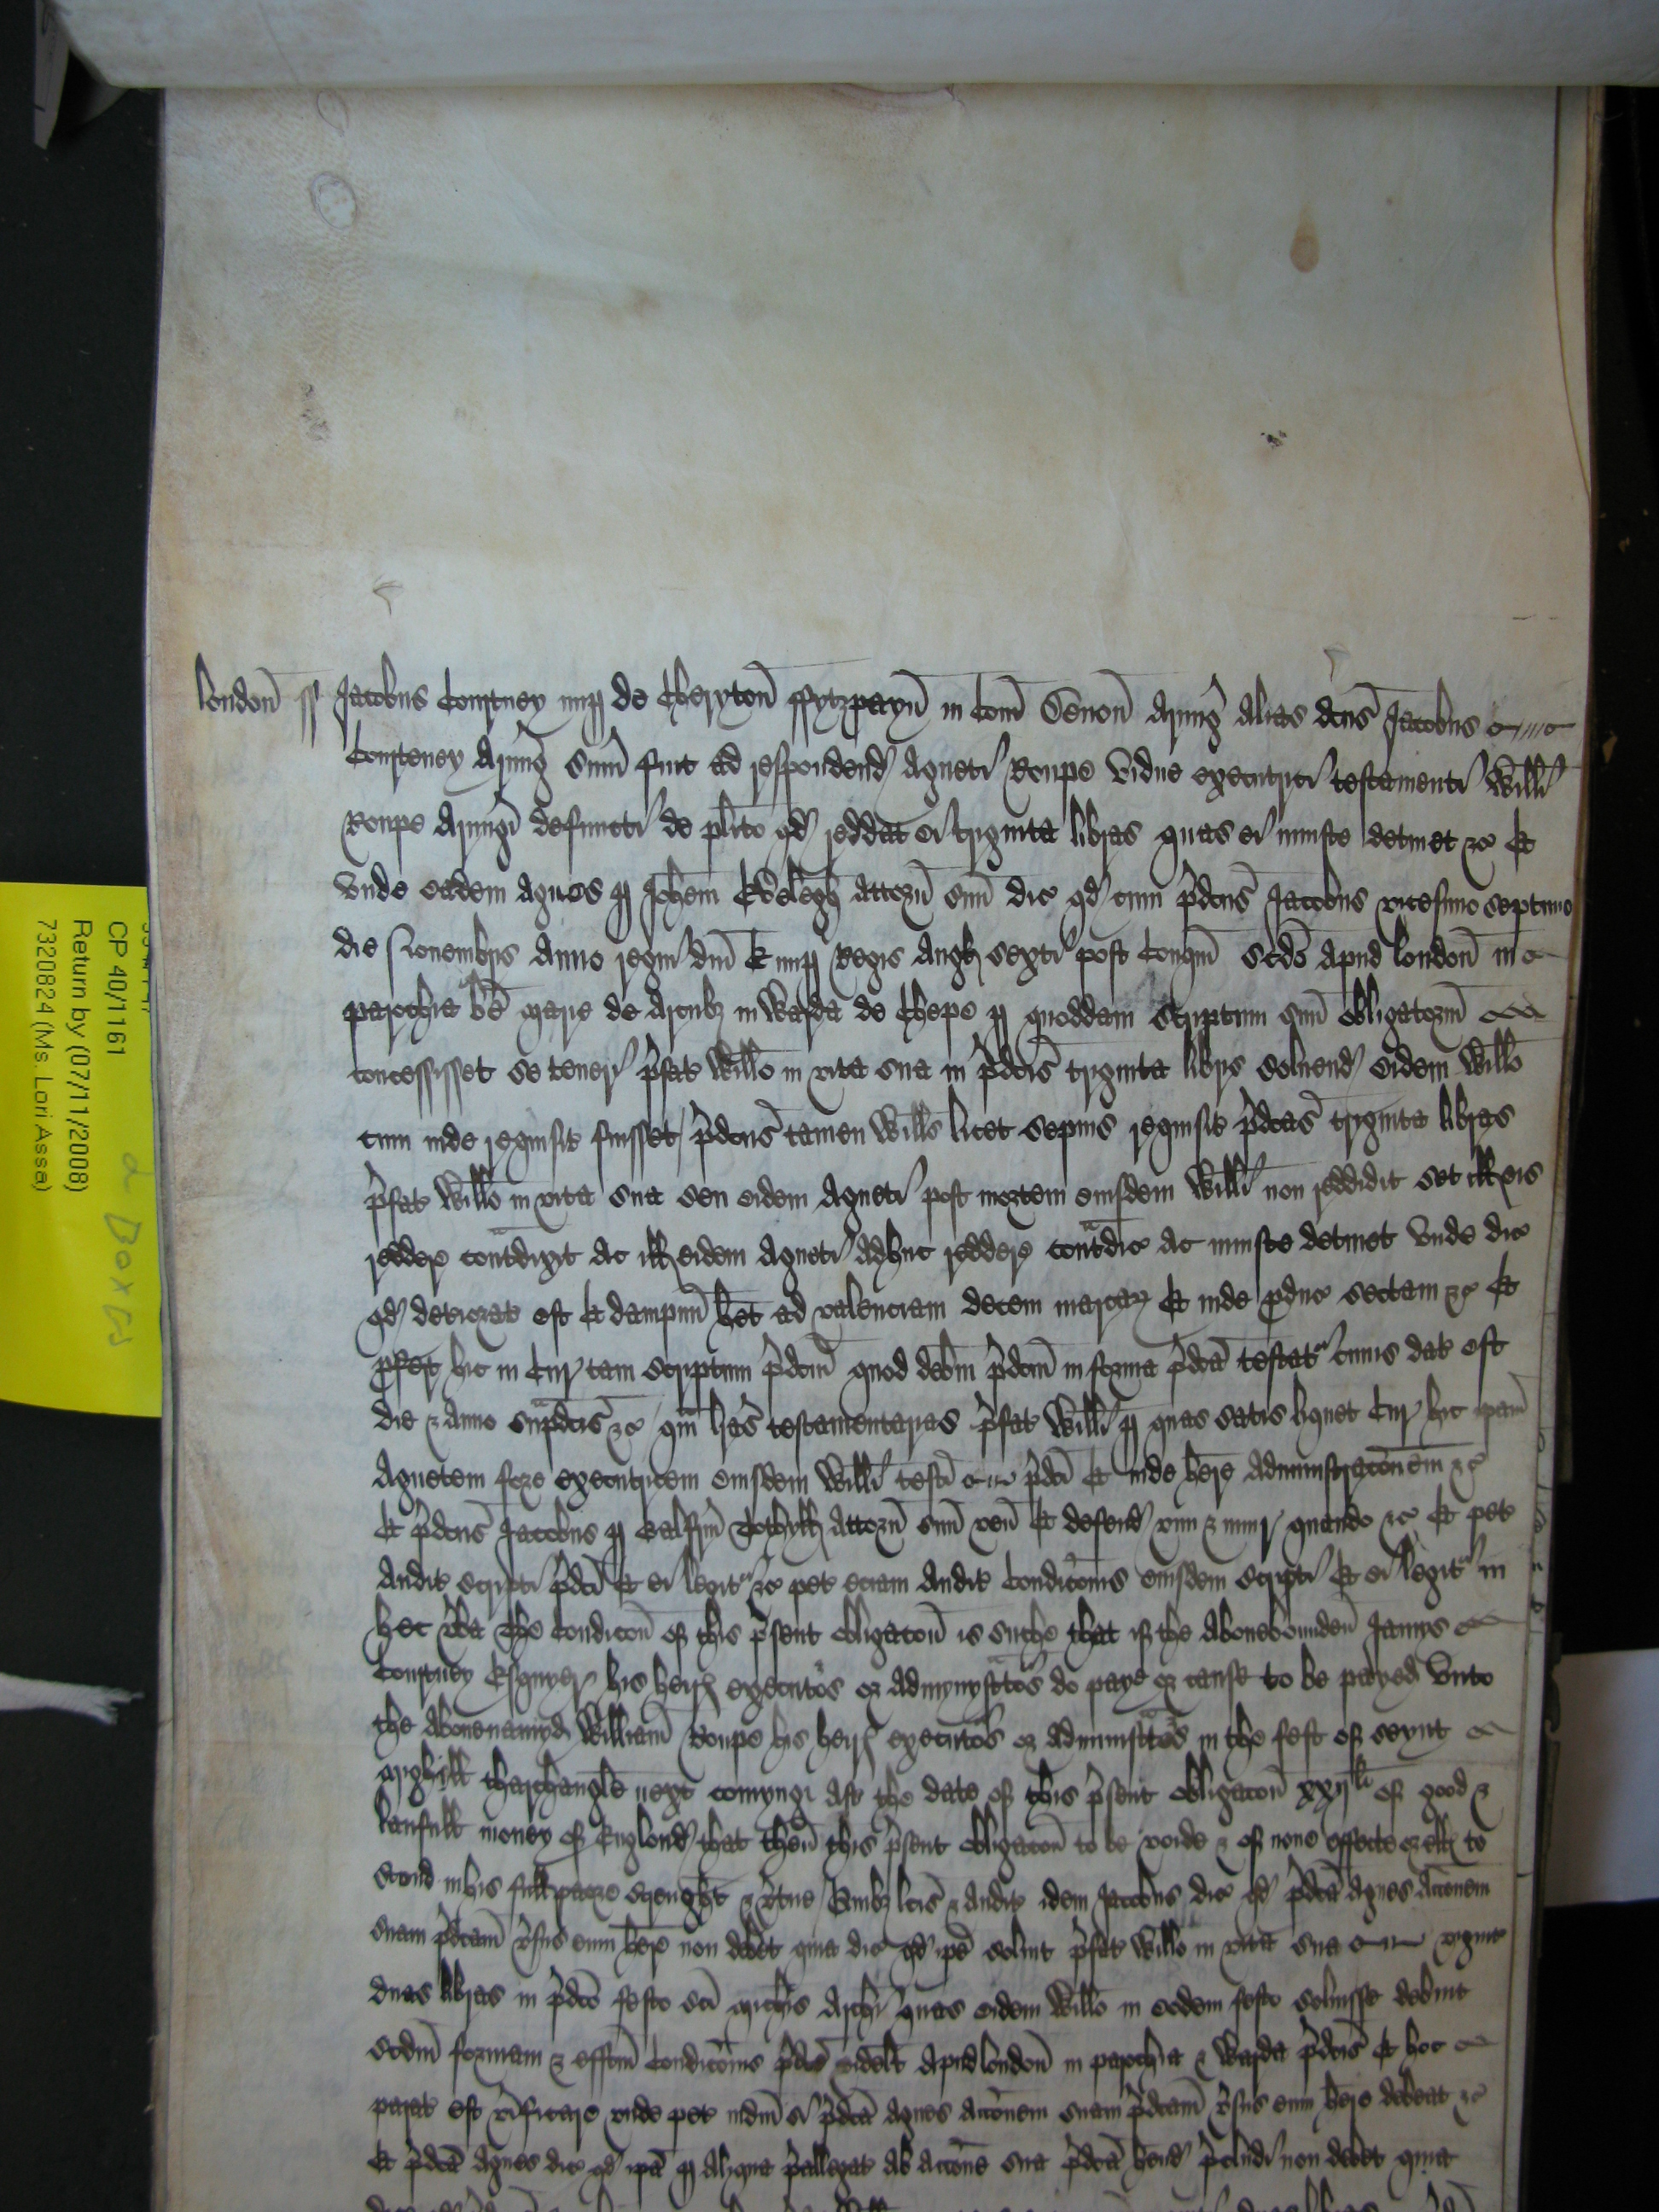 London ss Jacobus Courtney nup de Cheryton ffytzpayn in Com Devon Armig alias dcus Jacobus
Courteney Armig sum fuit ad respondend Agneti Roupe vidue executrici testamenti Willi
Roupe Armigi defuncti de plito qd reddat ei triginta libras quas ei iniuste detinet &c Et
unde eadem Agnes p Johem Eveleigh attorn suu dic qd cum pdcus Jacobus vicesimo septimo
die Novembris Anno regni dni E nup Regis Angl sexti post conqm scdo apud London in
parochia be Marie de Arcub in Warda de Chepe p quoddam scriptum suu obligatorm
concessisset se teneri pfat Willo in vita sua in pdcis triginta libris solvend eidem Willo
cum inde requisit fuisset pdcus tamen Willo licet sepius requisit pdcas triginta libras
pfat Willo in vita sua seu eidem Agneti post mortem eiusdem Willi non reddidit set ill eis
redder contdixit ac ill eidem Agneti adhuc reddere contdic ac iniuste detinet Unde dic
qd deteriorat est Et dampnu het ad valenciam decem marcar Et inde pduc sectam &c Et
pfert hic in Cur tam scriptum pdcm quod debm pdcm in forma pdca testat cuius dat est
die & Anno supdcis &c qm lras testamentarias pfat Willi p quas satis liquet Cur hic ipam
Agnetem fore executricem eiusdem Willi testi pdci Et inde here administraconem &c
Et pdcus Jacobus p Galfrm Tothyll attorn suu ven Et defend vim & iniur quando &c Et pet
audit scripti pdci Et ei legit &c pet eciam audit Condicois eiusdem scripti Et ei legit in
hec vba The Condicon of this psent obligacon is suche that if the abovebounden Jamys
Courtney Esquyer his heirs executos or admynystatos do paye or cause to be payed Unto
the abovenamyd William Roupe his heirs executos or administatos in the fest of seynt
Mighill tharchangle next comyng aft the date of this psent obligacon xxij li of good &
laufull money of Englond that then this psent obligacon to be voide & of none effecte or ell to
stond in his full power strenght & vtue Quib lcis & audit idem Jacobus dic qd pdca Agnes accionem
suam pdcam vsus eum here non debet quia dic qd ipe solvit pfat Willo in vita sua vigint
duas libras in pdco festo sci Michis Archi quas eidem Willo in eodem festo solvisse debuit
scdm formam & effcm Condicois pdce videlt apud London in parochia & Warda pdcis Et hoc
parat est vificare unde pet iudm si pdca Agnes accionem suam pdcam vsus eum here debeat &c
Et pdca Agnes dic qd ipa p aliqua pallegat ab accone sua pdca hend pcludi non debet quia
CP 40/1161
Return by (07/11/2008)
7320824 (Ms. Lori Assa)